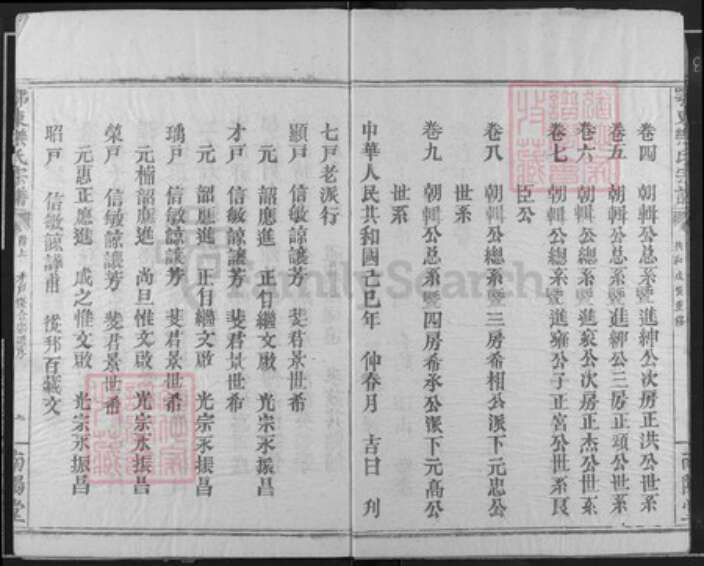 卷四 朝輯公总系暨進紳公次房正洪公世系
卷五 朝輯公总系暨進紳公三房正頌公世系
卷六 朝輯公総系暨進 公次房正杰公世系
卷七 朝輯公総系暨進雍公子正宮公世系艮
臣公
卷八 朝輯公總系暨三房希相公派下元忠公
世系
卷九 朝輯公总系暨四房希承公派下元高公
世系
中華人民共和國己巳年 仲春月 吉日 刋
七戸老派行
顯戸 信敏諒讓芳 斐君景世希
元 韶應進 正自繼文啟 光宗永振昌
才戸 信敏諒讓芳 斐君景世希
元 韶應進 正自繼文啟 光宗永振昌
瑀戸 信敏諒讓芳 斐君景世希
元楠韶應進 尚旦惟文啟 光宗永振昌
榮戸 信敏諒讓芳 斐君景世希
元惠正應進 成之惟文啟 光宗永振昌
昭戸 信敏諒 甫 從邦百 文
鄂東樂氏宗譜
首上
南陽堂
FamilySearch